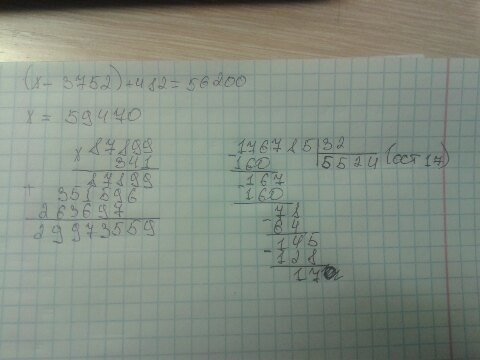 (x - 3752) + 482 = 56200
x = 59470
x 87899
341
87899
+ 351596
263697
29973559
- 176785 | 32
160 | 5524 (ост 17)
- 167
160
- 78
64
- 145
- 128
17